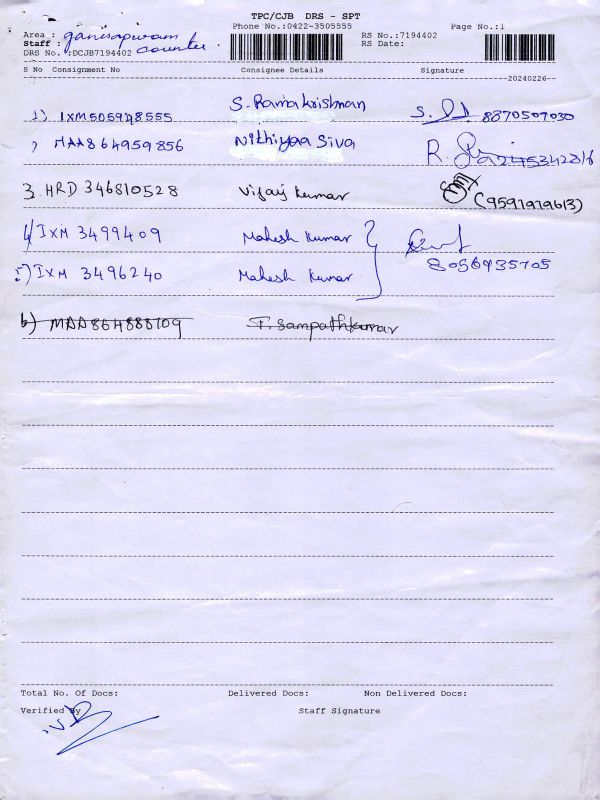 TPC/CJB DRS - SPT
Phone No.:0422-3505555 Page No.:1
Area : ganesapuram RS No.:7194402
Staff : counter RS Date:
DRS No.:DCJB7194402
S No Consignment No Consignee Details Signature
20240226
1) IXM505948555 S. Ramakrishnan 8870507030
2) MAA864959856 Nithiyaa Siva
3. HRD 346810528 Vijay Kumar
4) IXM 3499409 Mahesh Kumar
5) IXM 3496240 Mahesh Kumar 8056935705
6) MAA864888709 T. Sampathkumar
Total No. Of Docs: Delivered Docs: Non Delivered Docs:
Verified By Staff Signature